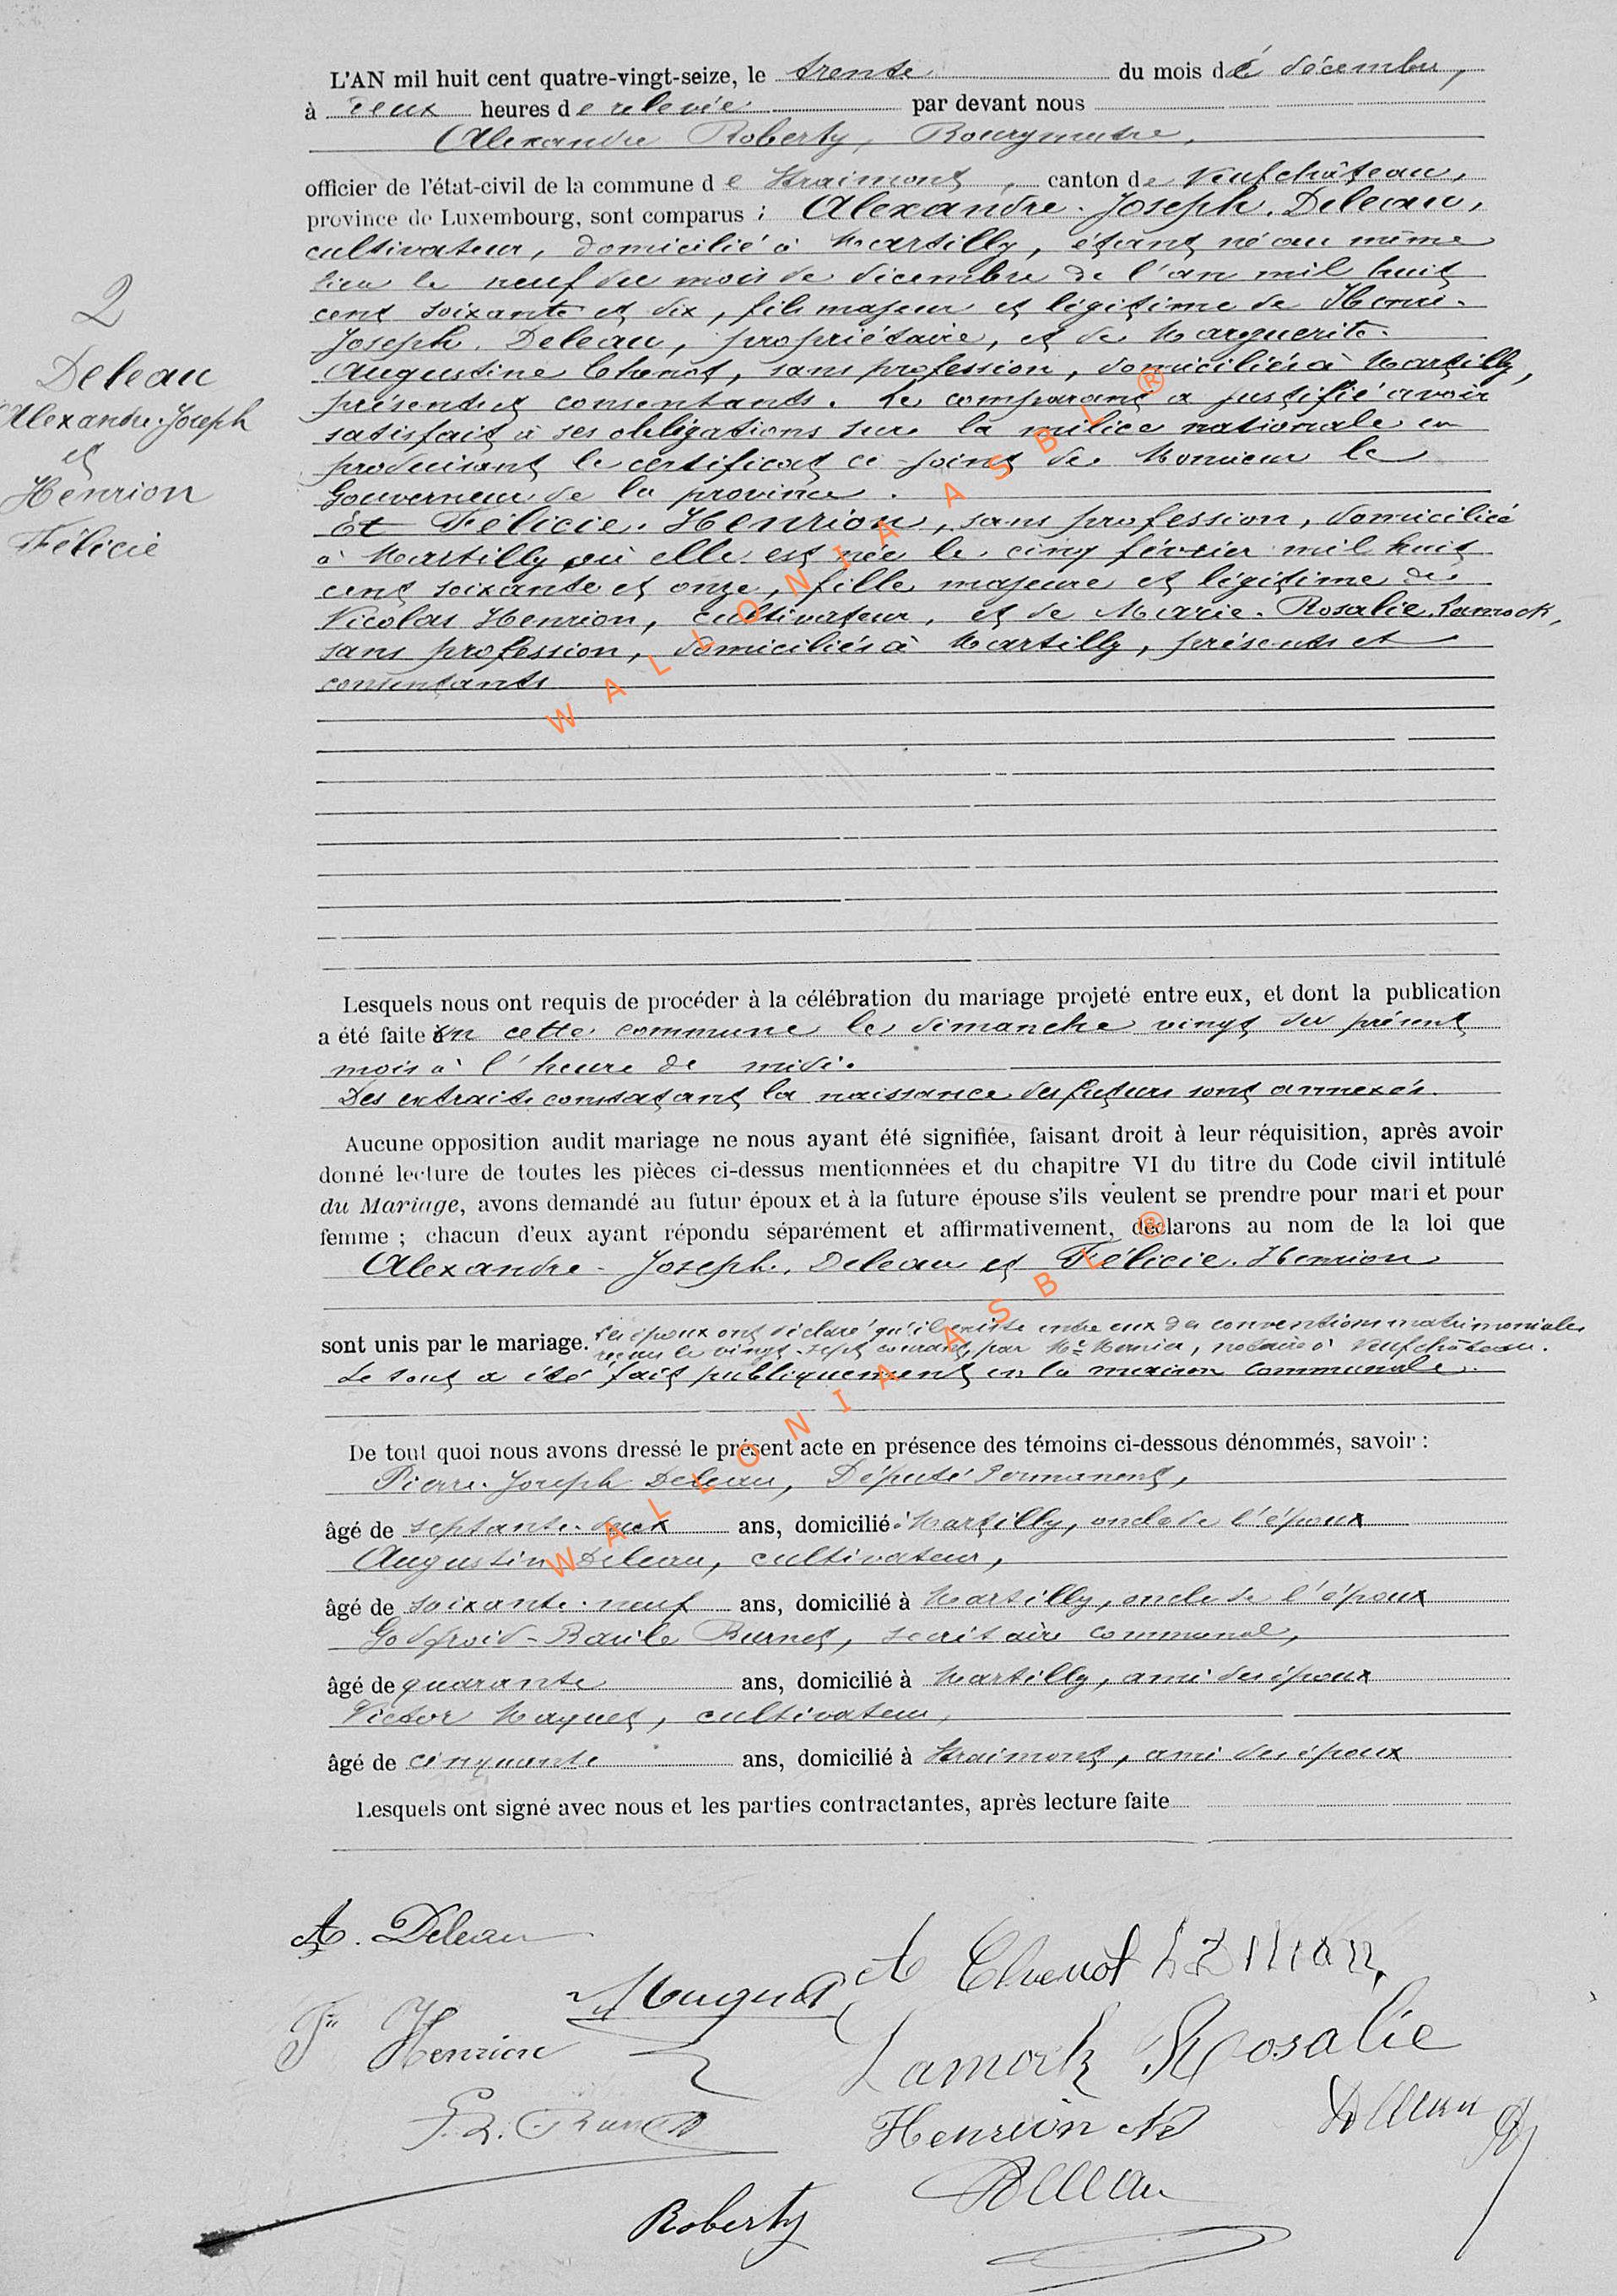 L'AN mil huit cent quatre-vingt-seize, le trente du mois de décembre,
à deux heures de relevée par devant nous
Alexandre Roberty, Bourgmestre,
officier de l'état-civil de la commune de Straimont, canton de Neufchâteau,
province de Luxembourg, sont comparus : Alexandre-Joseph Deleau,
cultivateur, domicilié à Martilly, étant né au même
lieu le neuf du mois de décembre de l'an mil huit
cent soixante et dix, fils majeur et légitime de Henri-
Joseph Deleau, propriétaire, et de Marguerite-
Augustine Chenot, sans profession, domiciliés à Martilly,
présents et consentants. Le comparant a justifié avoir
satisfait à ses obligations sur la milice nationale en
produisant le certificat ci-joint de Monsieur le
Gouverneur de la province.
Et Félicie Henrion, sans profession, domiciliée
à Martilly où elle est née le cinq février mil huit
cent soixante et onze, fille majeure et légitime de
Nicolas Henrion, cultivateur, et de Marie-Rosalie Lamock,
sans profession, domiciliés à Martilly, présents et
consentants
2
Deleau
Alexandre-Joseph
et
Henrion
Félicie
Lesquels nous ont requis de procéder à la célébration du mariage projeté entre eux, et dont la publication
a été faite en cette commune le dimanche vingt du présent
mois à l'heure de midi.
Des extraits constatant la naissance des futurs sont annexés.
Aucune opposition audit mariage ne nous ayant été signifiée, faisant droit à leur réquisition, après avoir
donné lecture de toutes les pièces ci-dessus mentionnées et du chapitre VI du titre du Code civil intitulé
du Mariage, avons demandé au futur époux et à la future épouse s'ils veulent se prendre pour mari et pour
femme ; chacun d'eux ayant répondu séparément et affirmativement, déclarons au nom de la loi que
Alexandre-Joseph Deleau et Félicie Henrion
sont unis par le mariage. Les époux ont déclaré qu'il existe entre eux des conventions matrimoniales
reçues le vingt-sept courant, par Me Monier, notaire à Neufchâteau.
Le tout a été fait publiquement en la maison communale.
De tout quoi nous avons dressé le présent acte en présence des témoins ci-dessous dénommés, savoir :
Pierre-Joseph Deleau, Député permanent,
âgé de septante-deux ans, domicilié à Martilly, oncle de l'époux
Augustin Deleau, cultivateur,
âgé de soixante-neuf ans, domicilié à Martilly, oncle de l'époux
Godfroid-Basile Burnet, secrétaire communal,
âgé de quarante ans, domicilié à Martilly, ami des époux
Victor Maquet, cultivateur,
âgé de cinquante ans, domicilié à Straimont, ami des époux
Lesquels ont signé avec nous et les parties contractantes, après lecture faite
A. Deleau
A Chenot
Maquet
Fie Henrion
Lamock Rosalie
Henrion Ns
Deleau
Deleau
Roberty
WALLONIA ASBL ®
WALLONIA ASBL ®